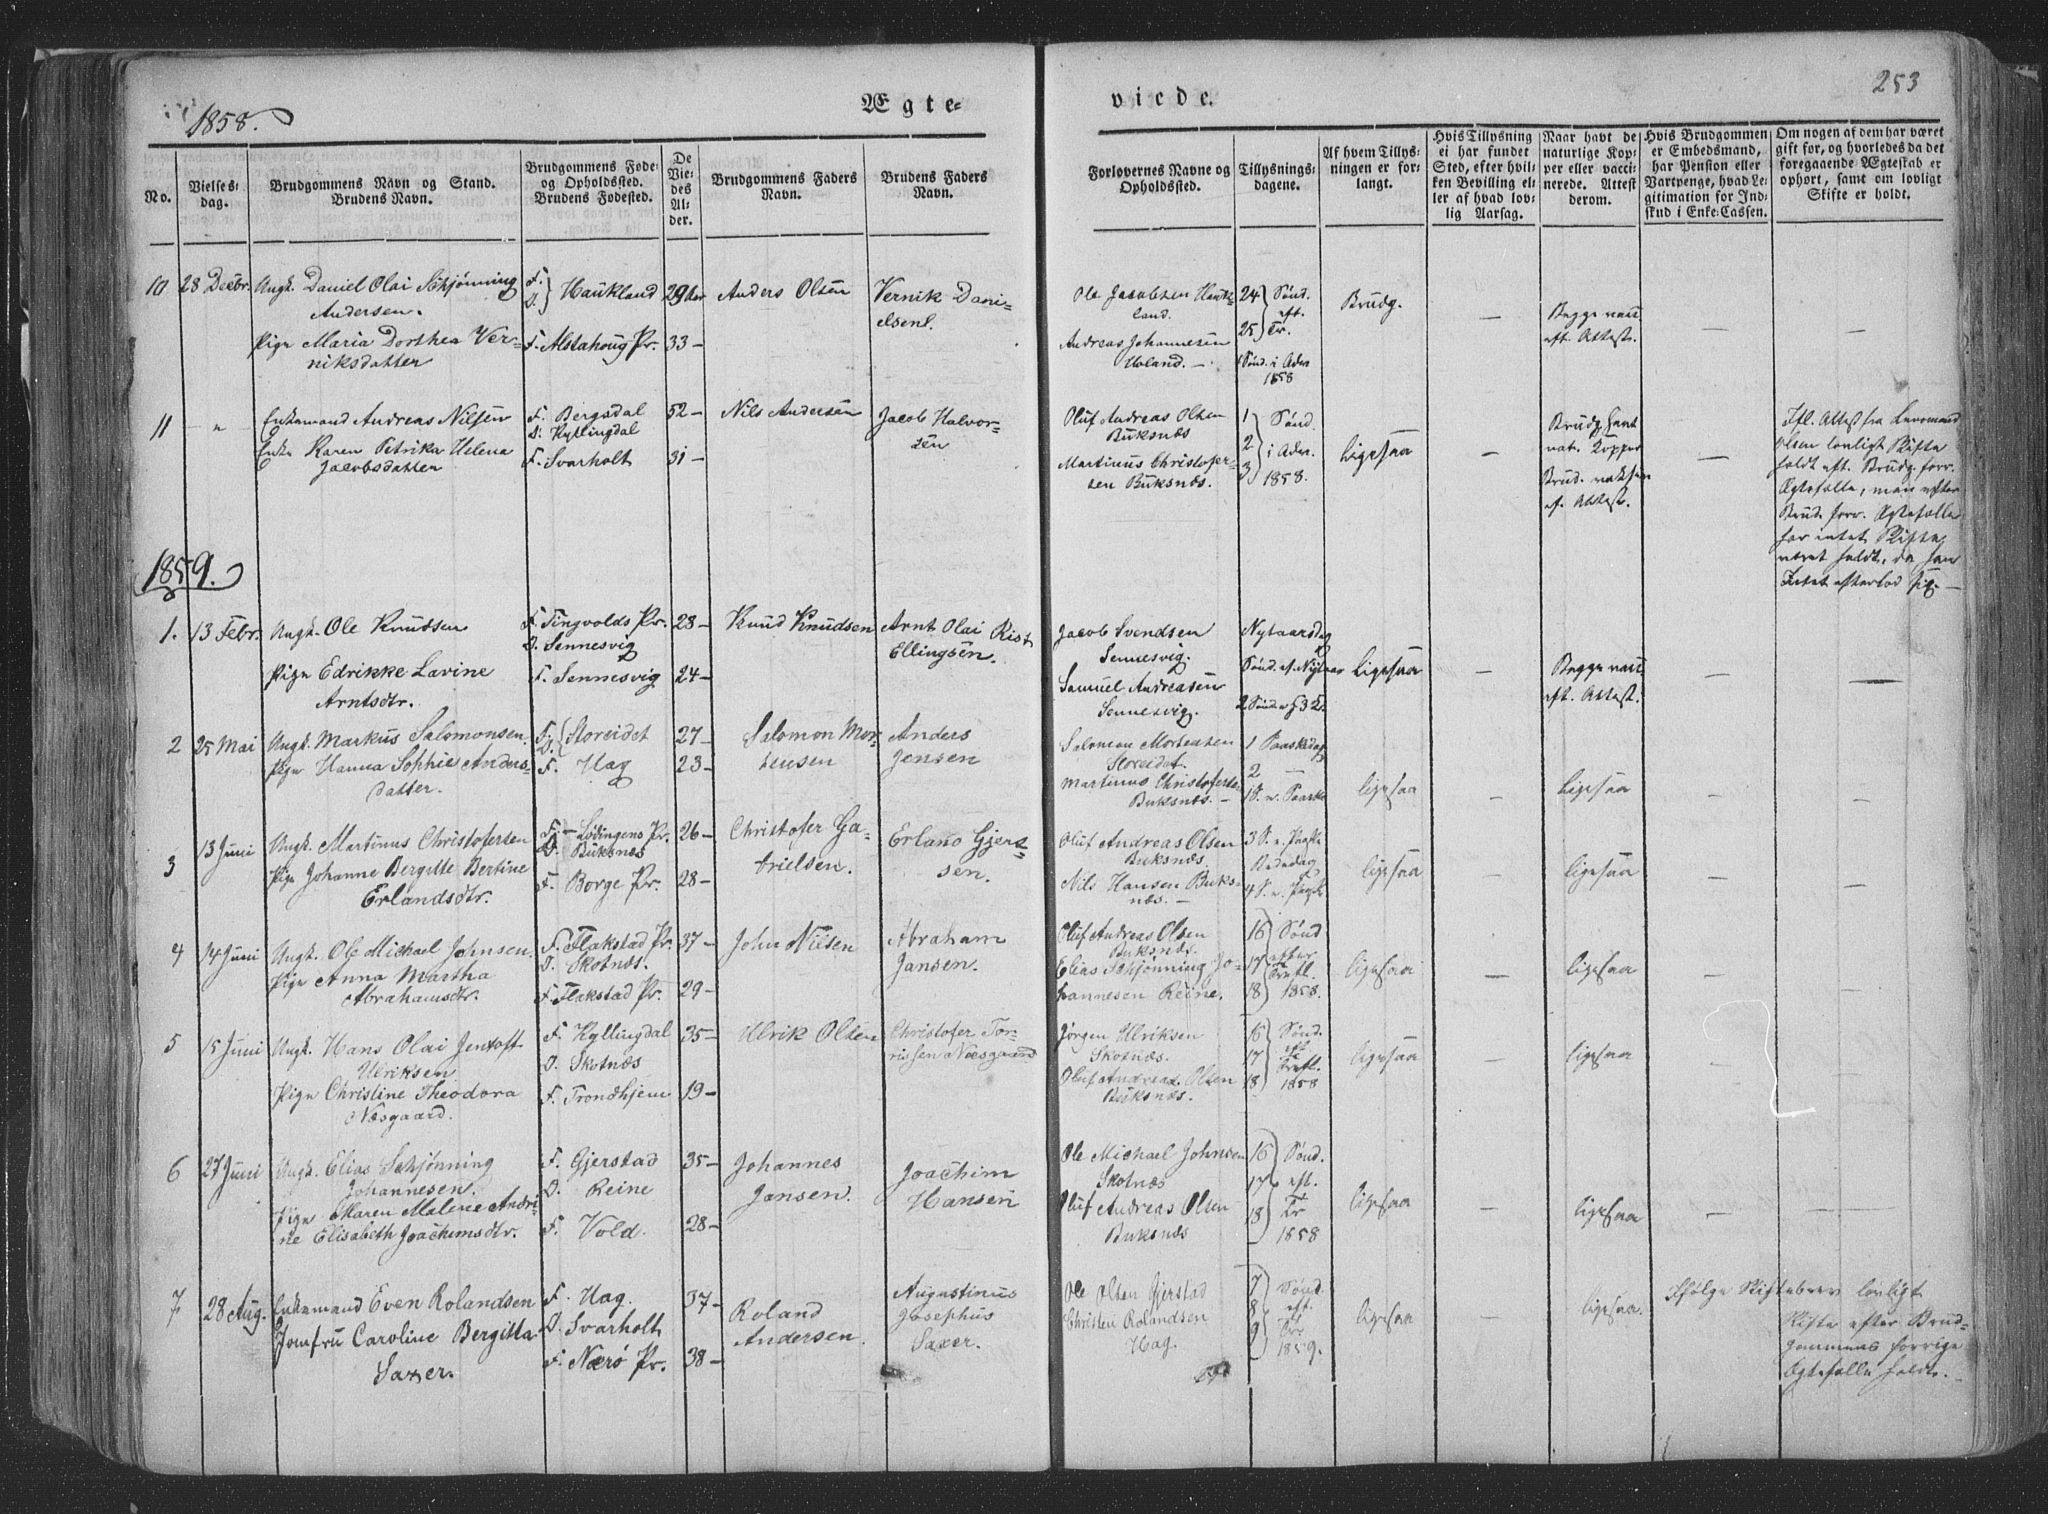 1858.
Ægte-
viede.
253
No.
Vielses-
dag.
Brudgommens Navn og Stand.
Brudens Navn.
Brudgommens Føde-
og Opholdssted.
Brudens Fødested.
De
Vie-
des
Al-
der.
Brudgommens Faders
Navn.
Brudens Faders
Navn.
Forlovernes Navne og
Opholdssted.
Tillysnings-
dagene.
Af hvem Tillys-
ningen er for-
langt.
Hvis Tillysning
ei har fundet
Sted, efter hvil-
ken Bevilling el-
ler af hvad lov-
lig Aarsag.
Naar havt de
naturlige Kop-
per eller vacci-
nerede. Attest
derom.
Hvis Brudgommen
er Embedsmand,
har Pension eller
Vartpenge, hvad Le-
gitimation for Ind-
skud i Enke-Cassen.
Om nogen af dem har været
gift før, og hvorledes da det
foregaaende Ægteskab er
ophørt, samt om lovligt
Skifte er holdt.
10 28 Decbr. Ungk. Daniel Olai Schjønning
Andersen.
Pige Maria Dorthea Ver-
niksdatter
F.
O. } Haukland
F. Alstahoug Pr.
29
33 -
Anders Olsen
Vernik Dani-
elsen.
Ole Jacobsen Hauk-
land.
Andreas Johannesen
Uoland. -
24 } Sønd.
eft.
25 } Tr.
1 Sønd. i Adv.
1858
Brudg.
-
Begge vacc.
eft. Attest.
-
-
11 - " Enkemand Andreas Nilsen
Enke Karen Petrika Helena
Jacobsdatter
F. Bergsdal
O. Kyllingdal
F. Svarholt
52 -
31 -
Nils Andersen
Jacob Halvor-
sen
Oluf Andreas Olsen
Buksnæs
Martinus Christofer-
sen Buksnæs.
1
2
3 } Sønd.
i Adv.
1858.
Ligesaa
-
Brudg. havt
nat. Kopper
Brud. vaksin.
ef. Attest.
-
Ifl. Attest fra Lensmand
Olsen lovligt Skifte
holdt eft. Brudg. forr.
Ægtefælle, men efter
Brud. forr. Ægtefælle
har intet Skifte
været holdt, da han
Intet efterlod sig. -
1859.
1. 13 Febr. Ungk. Ole Knudsen
Pige Edrikke Lavine
Arntsdtr.
F. Tingvolds Pr.
O. Sennesvig
F. Sennesvig
28 -
24 -
Knud Knudsen
Arnt Olai Rist
Ellingsen.
Jacob Svendsen
Sennesvig.
Samuel Andreasen
Sennesvig.
Nytaarsdag
Sønd. ef. Nytaar
Ligesaa
-
Begge vacc.
eft. Attest.
-
-
2 25 Mai Ungk. Markus Salomonsen.
Pige Hanna Sophie Anders-
datter.
F.
O. { Storeidet
F. Hag
27 -
23 -
Salomon Mor-
tensen
Anders
Jensen
Salomon Mortensen
Storeidet.
Martinus Christofersen
Buksnæs. -
1 Paaskedag
2 -
1 S. e. Paaske
Ligesaa
-
Ligesaa
-
-
3 13 Juni Ungk. Martinus Christofersen
Pige Johanne Bergitte Bertine
Erlandsdtr.
F. - Lødingens Pr.
O. Buksnæs
F. Borge Pr.
26 -
28 -
Christofer Ga-
brielsen.
Erland Gjert-
sen.
Oluf Andreas Olsen
Buksnæs.
Nils Hansen Buks-
næs. -
3 S. e. Paaske
Bededag
4 S. e. Paaske
Ligesaa
-
Ligesaa
-
-
4 14 Juni Ungk. Ole Michael Johnsen.
Pige Anna Martha
Abrahamsdtr.
F. Flakstad Pr.
O. Skotnæs.
F. Flakstad Pr.
37 -
29 -
John Nilsen
Abraham
Jansen.
Oluf Andreas Olsen
Buksnæs.
Elias Schjønning Jo-
hannesen Reine.
16
17
18 } Sønd
efter
Trefl.
1858.
Ligesaa
-
Ligesaa
-
-
5 15 Juni Ungk. Hans Olai Jentoft
Ulriksen
Pige Christine Theodora
Næsgaard.
F. Kyllingdal
O. Skotnæs
F. Trondhjem
35 -
19 -
Ulrik Olsen
Christofer Tor-
rissen Næsgaard
Jørgen Ulriksen
Skotnæs.
Oluf Andreas Olsen
Buksnæs.
16
17
18 } Sønd.
eft
Trefl.
1858
Ligesaa
-
Ligesaa
-
-
6 27 Juni Ungk. Elias Schjønning
Johannesen.
Pige Maren Malene Andri-
ne Elisabeth Joachimsdtr.
F. Gjerstad
O. Reine
F. Vold.
35 -
28 -
Johannes
Jansen.
Joachim
Hansen
Ole Michael Johnsen
Skotnæs
Oluf Andreas Olsen
Buksnæs
16
17
18 } Sønd.
eft.
Tr
1858
Ligesaa
-
Ligesaa
-
7 28 Aug. Enkemand Even Rolandsen
Jomfru Caroline Bergitta
Saxer.
F. Hag.
O. Svarholt
F. Nærø Pr.
37 -
38 -
Roland
Andersen.
Augustinus
Josephus
Saxer.
Ole Olsen Gjerstad
Christen Rolandsen
Hag.
7
8
9 } Sønd.
eft.
Tr.
1859.
Ligesaa
-
Ligesaa.
Ifølge Skiftebrev lovligt
Skifte efter Brud-
gommens forrige
Ægtefælle holdt. -